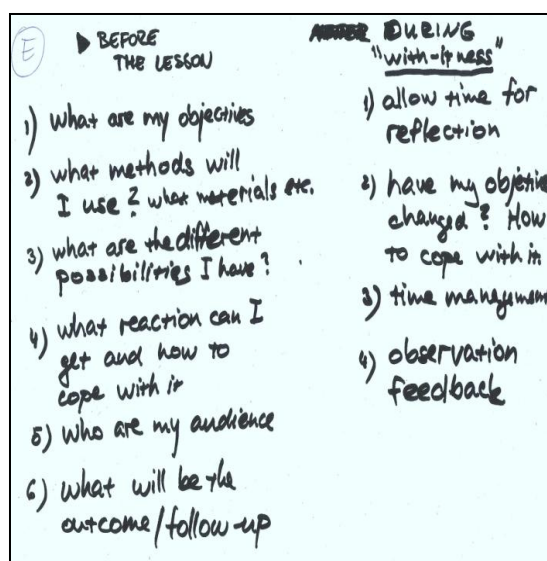 E
▶ BEFORE
THE LESSON
1) what are my objectives
2) what methods will
I use? what materials etc.
3) what are the different
possibilities I have?
4) what reaction can I
get and how to
cope with it
5) who are my audience
6) what will be the
outcome/follow-up
DURING
"with-it ness"
1) allow time for
reflection
2) have my objective
changed? How
to cope with it
3) time management
4) observation
feedback